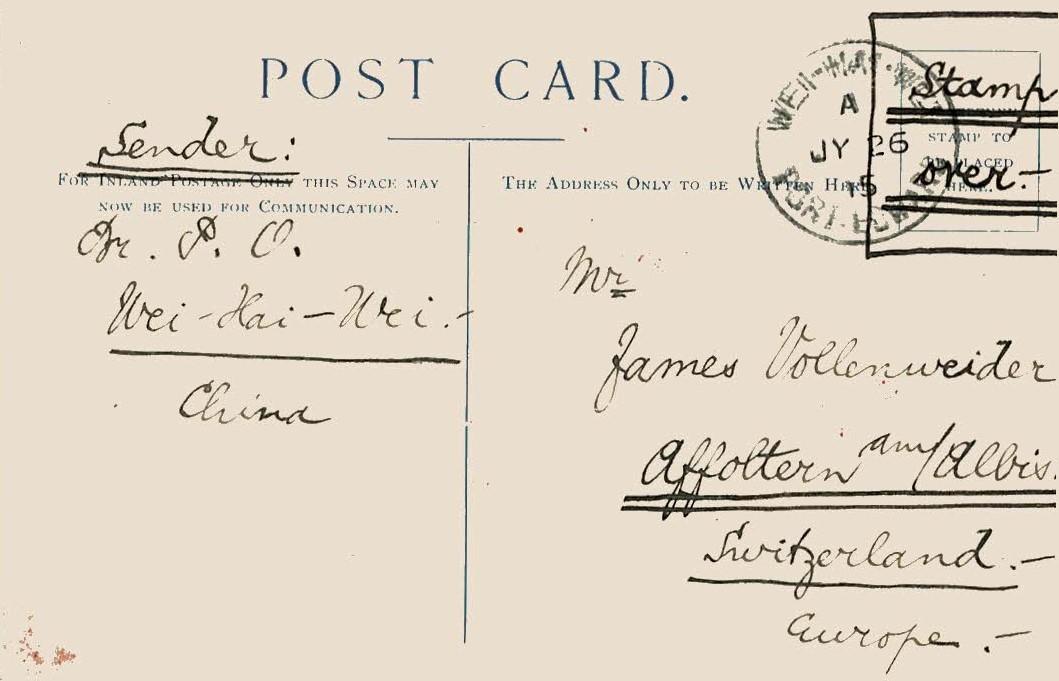 POST CARD.
Sender:
FOR INLAND POSTAGE ONLY THIS SPACE MAY
NOW BE USED FOR COMMUNICATION.
Br. P. O.
Wei-Hai-Wei.-
China
THE ADDRESS ONLY TO BE WRITTEN HERE
WEI-HAI-WEI
A
JY 26
15
PORT EDWARD
STAMP TO
BE PLACED
HERE.
Stamp
over.-
Mr
James Vollenweider
Affoltern am/Albis.
Switzerland.-
Europe.-